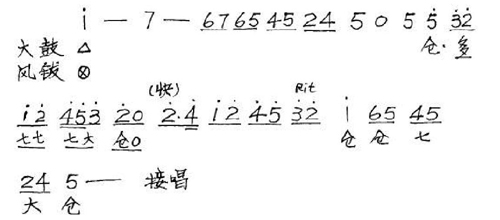 i̇ — 7 — 67 65 45 24 5 0 5 5̇ 3̇2̇
大鼓 △ 仓· 多
风钹 ⊗
(快) Rit
i̇ 2̇ 4̇5̇3̇ 2̇0 2̇·4̇ i̇2̇ 4̇5̇ 3̇2̇ i̇ 65 45
七七 七大 仓0 仓 仓 七
24 5 — 接唱
大 仓